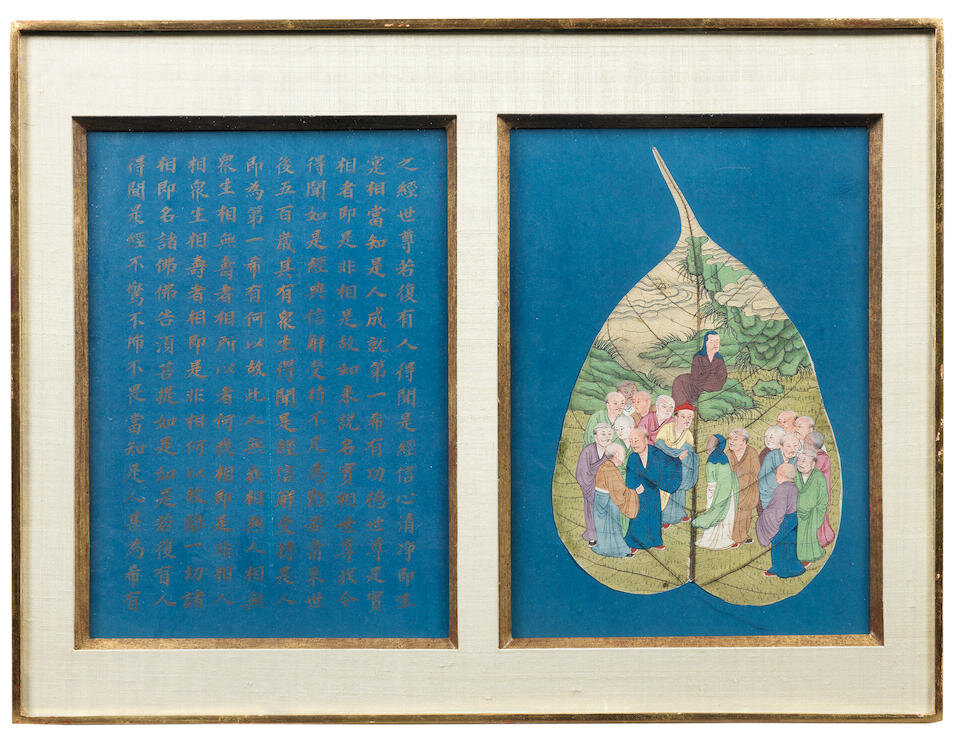 之經世尊若復有人得聞是經信心清淨即生
寔相當知是人成就第一希有功德世尊是實
相者即是非相是故如來說名實相世尊我今
得聞如是經典信解受持不足為難若當來世
後五百歲其有衆生得聞是經信解受持是人
即為第一希有何以故此人無我相無人相無
衆生相無壽者相所以者何我相即是非相人
相衆生相壽者相即是非相何以故離一切諸
相即名諸佛佛告須菩提如是如是若復有人
得聞是經不驚不怖不畏當知是人甚為希有